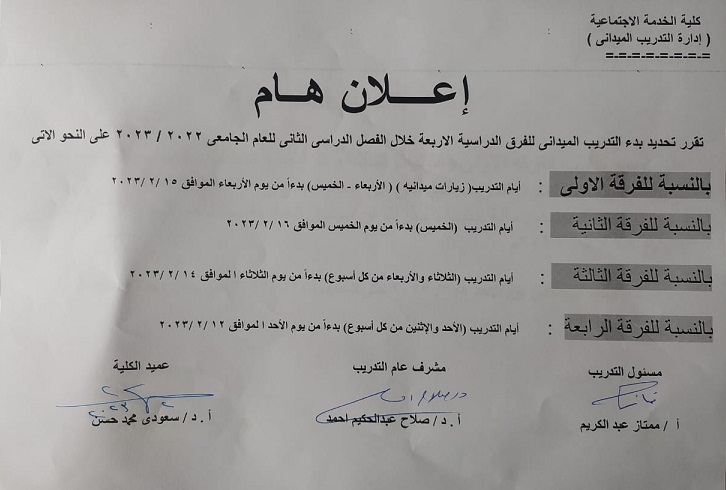 كلية الخدمة الاجتماعية
( إدارة التدريب الميدانى )
=-=-=-=-=-=-=-=
إعــــلان هـــام
تقرر تحديد بدء التدريب الميدانى للفرق الدراسية الاربعة خلال الفصل الدراسى الثانى للعام الجامعى ٢٠٢٢ / ٢٠٢٣ على النحو الاتى
بالنسبة للفرقة الاولى : أيام التدريب( زيارات ميدانيه ) ( الأربعاء - الخميس) بدءاً من يوم الأربعاء الموافق ٢٠٢٣/٢/١٥
بالنسبة للفرقة الثانية : أيام التدريب (الخميس) بدءاً من يوم الخميس الموافق ٢٠٢٣/٢/١٦
بالنسبة للفرقة الثالثة : أيام التدريب (الثلاثاء والأربعاء من كل أسبوع) بدءاً من يوم الثلاثاء الموافق ٢٠٢٣/٢/١٤
بالنسبة للفرقة الرابعة : أيام التدريب (الأحد والإثنين من كل أسبوع) بدءاً من يوم الأحد الموافق ٢٠٢٣/٢/١٢
مسئول التدريب مشرف عام التدريب عميد الكلية
أ / ممتاز عبد الكريم أ.د/ صلاح عبدالحكيم احمد أ.د/ سعودى محمد حسن